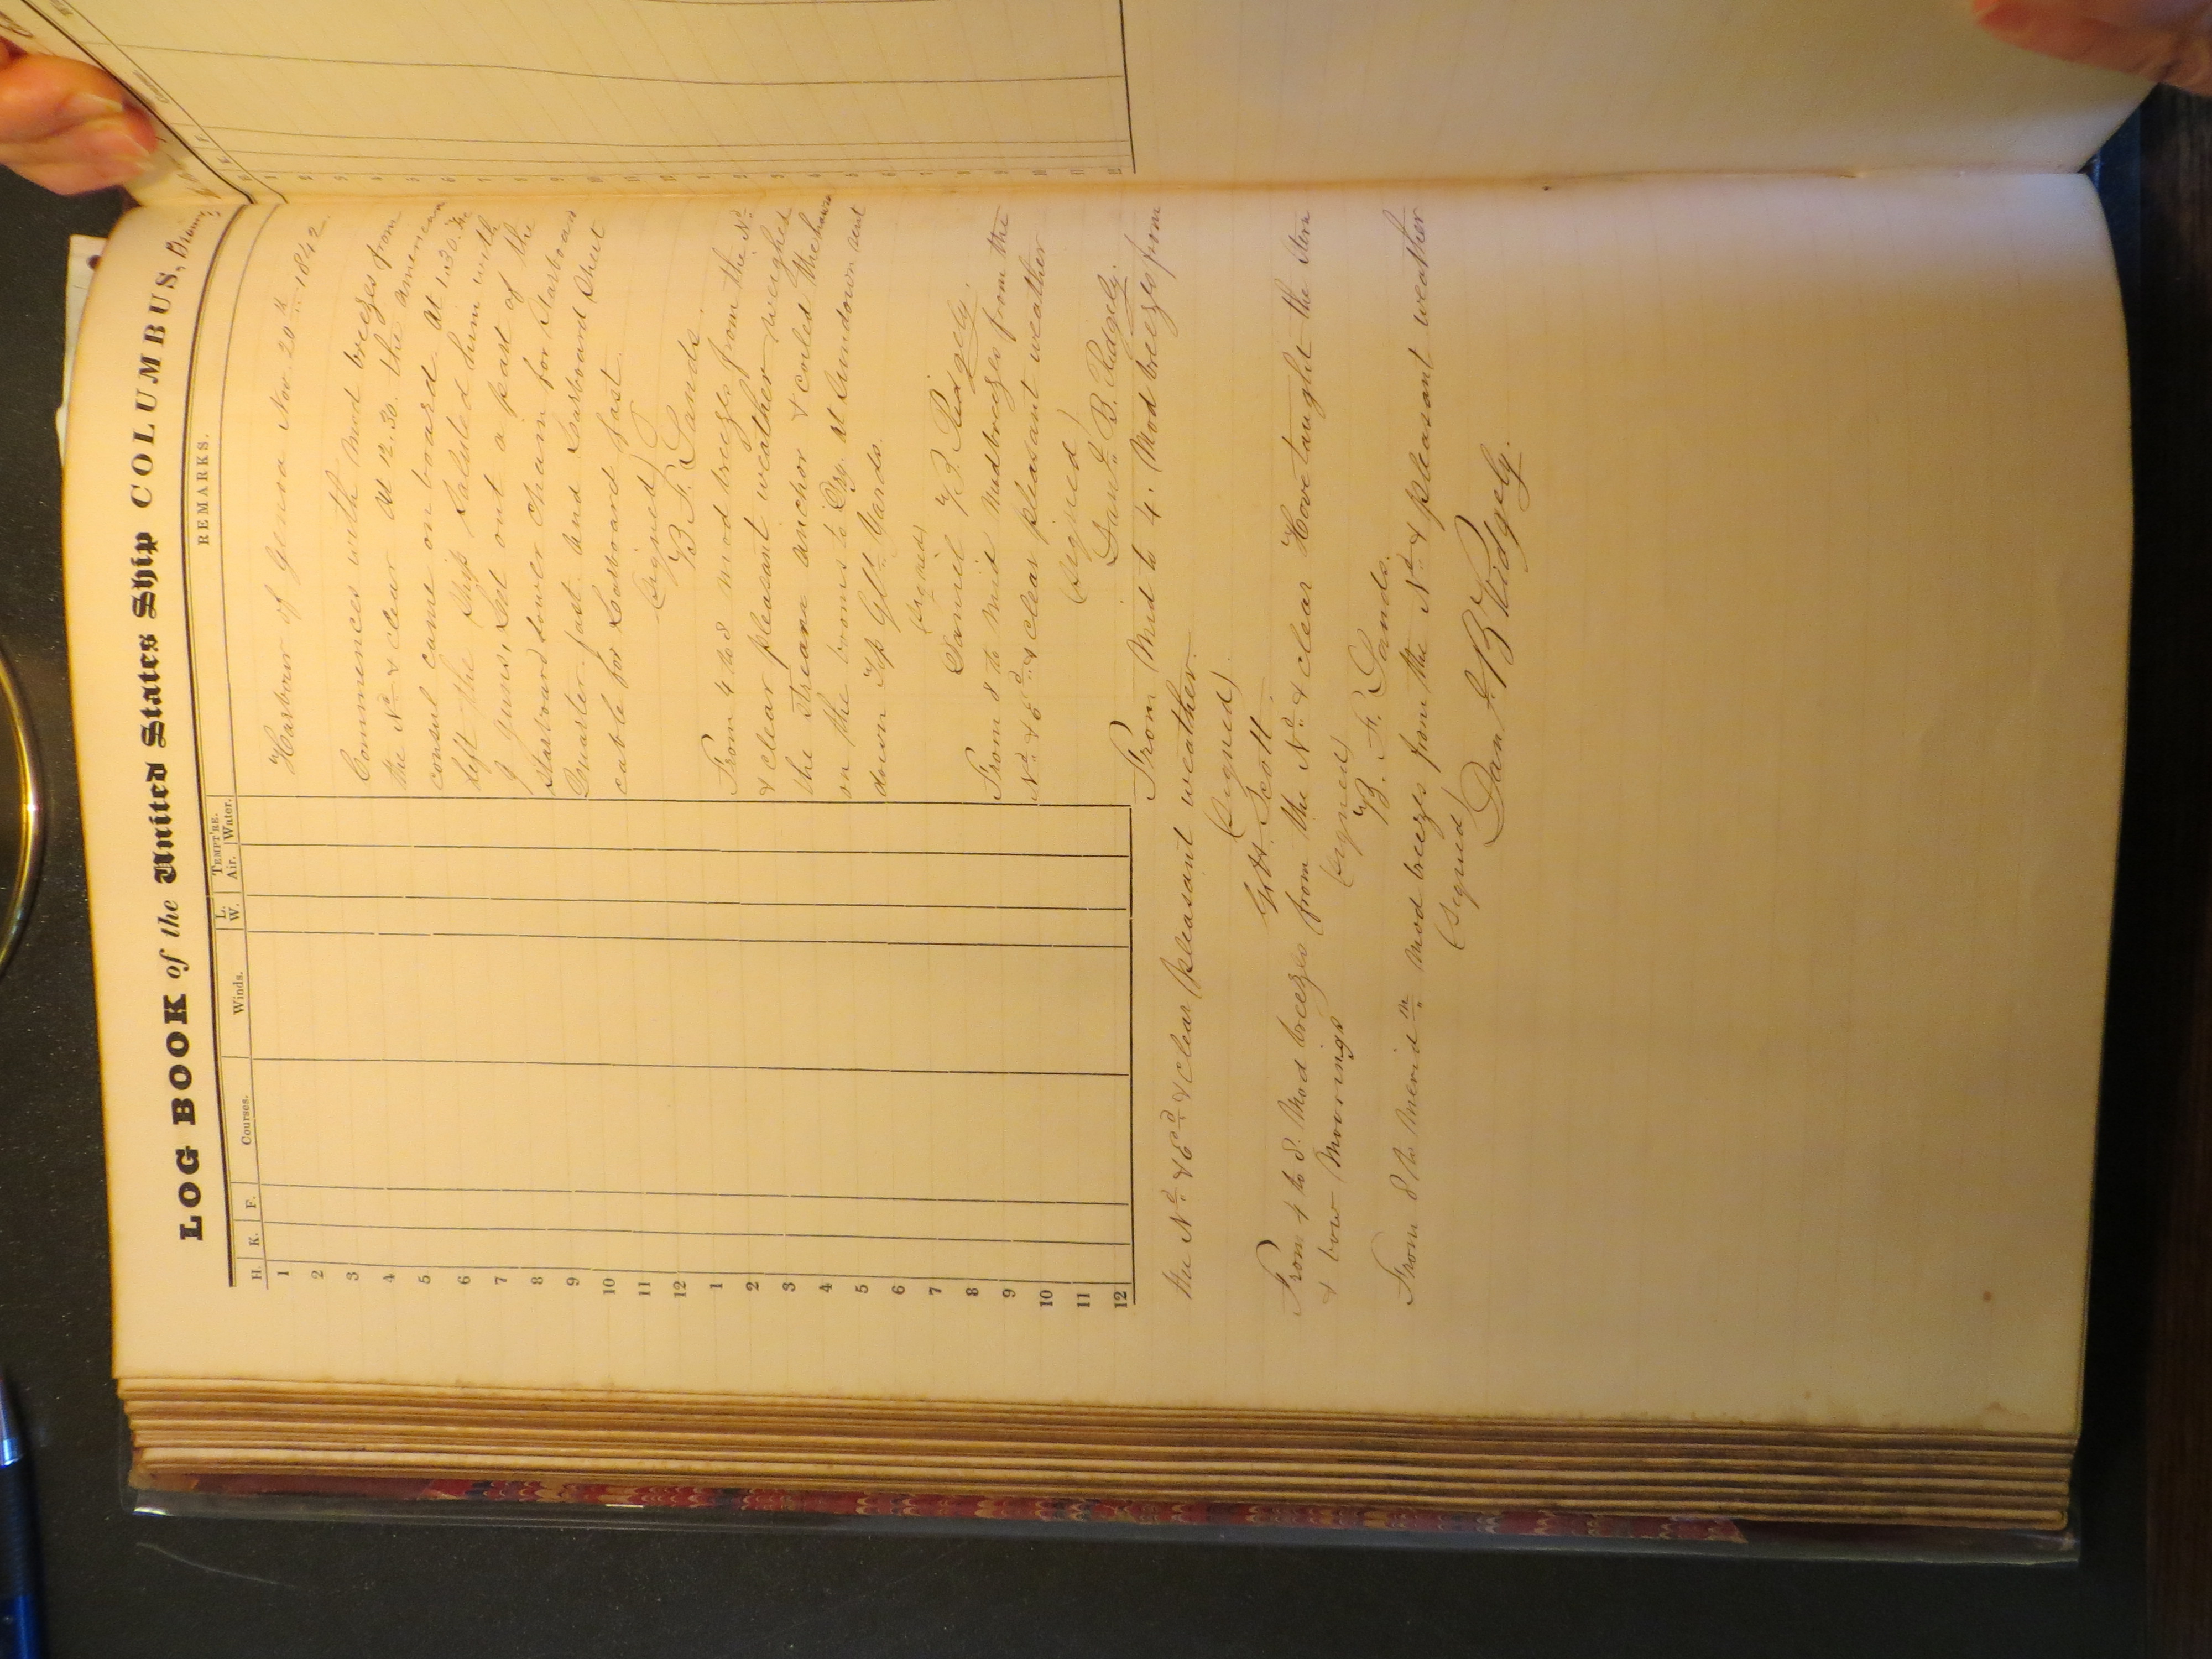 LOG BOOK of the United States Ship COLUMBUS,
H. K. F. Courses. Winds. L. W. TEMPT'RE. Air. Water. REMARKS.
1
2
3
4
5
6
7
8
9
10
11
12
1
2
3
4
5
6
7
8
9
10
11
12
Harbour of Genoa Nov. 20th 1842.
Commences with Mod breezes from
the Nd & clear At 12.30. the American
consul came on board At 1.30 he
left the Ship Saluted him with
guns, Got out a part of the
Starboard Lower Chain for Starboard
Quarter fast and Larboard Sheet
cable for Larboard fast.
(Signed)
B. F. Sands.
From 4 to 8 mod breezes from the Nd
& clear pleasant weather weighed
the Stream anchor & coiled
on the booms to Dry. At Sundown sent
down Top Glt Yards.
(Signed)
Daniel B. Ridgely.
From 8 to Mid Mod breezes from the
Nd & Ed & clear pleasant weather
(Signed)
Danl. B. Ridgely.
From Mid to 4. Mod breezes from
the Nd & Ed & clear pleasant weather.
(Signed)
Scott.
From 4 to 8. Mod breezes from the Nd & clear Hove taught the Stern
& bow Moorings
(Signed)
B. F. Sands.
From 8 to Meridn. Mod breezes from the Nd & pleasant weather
(Signed)
Dan l. B Ridgely.